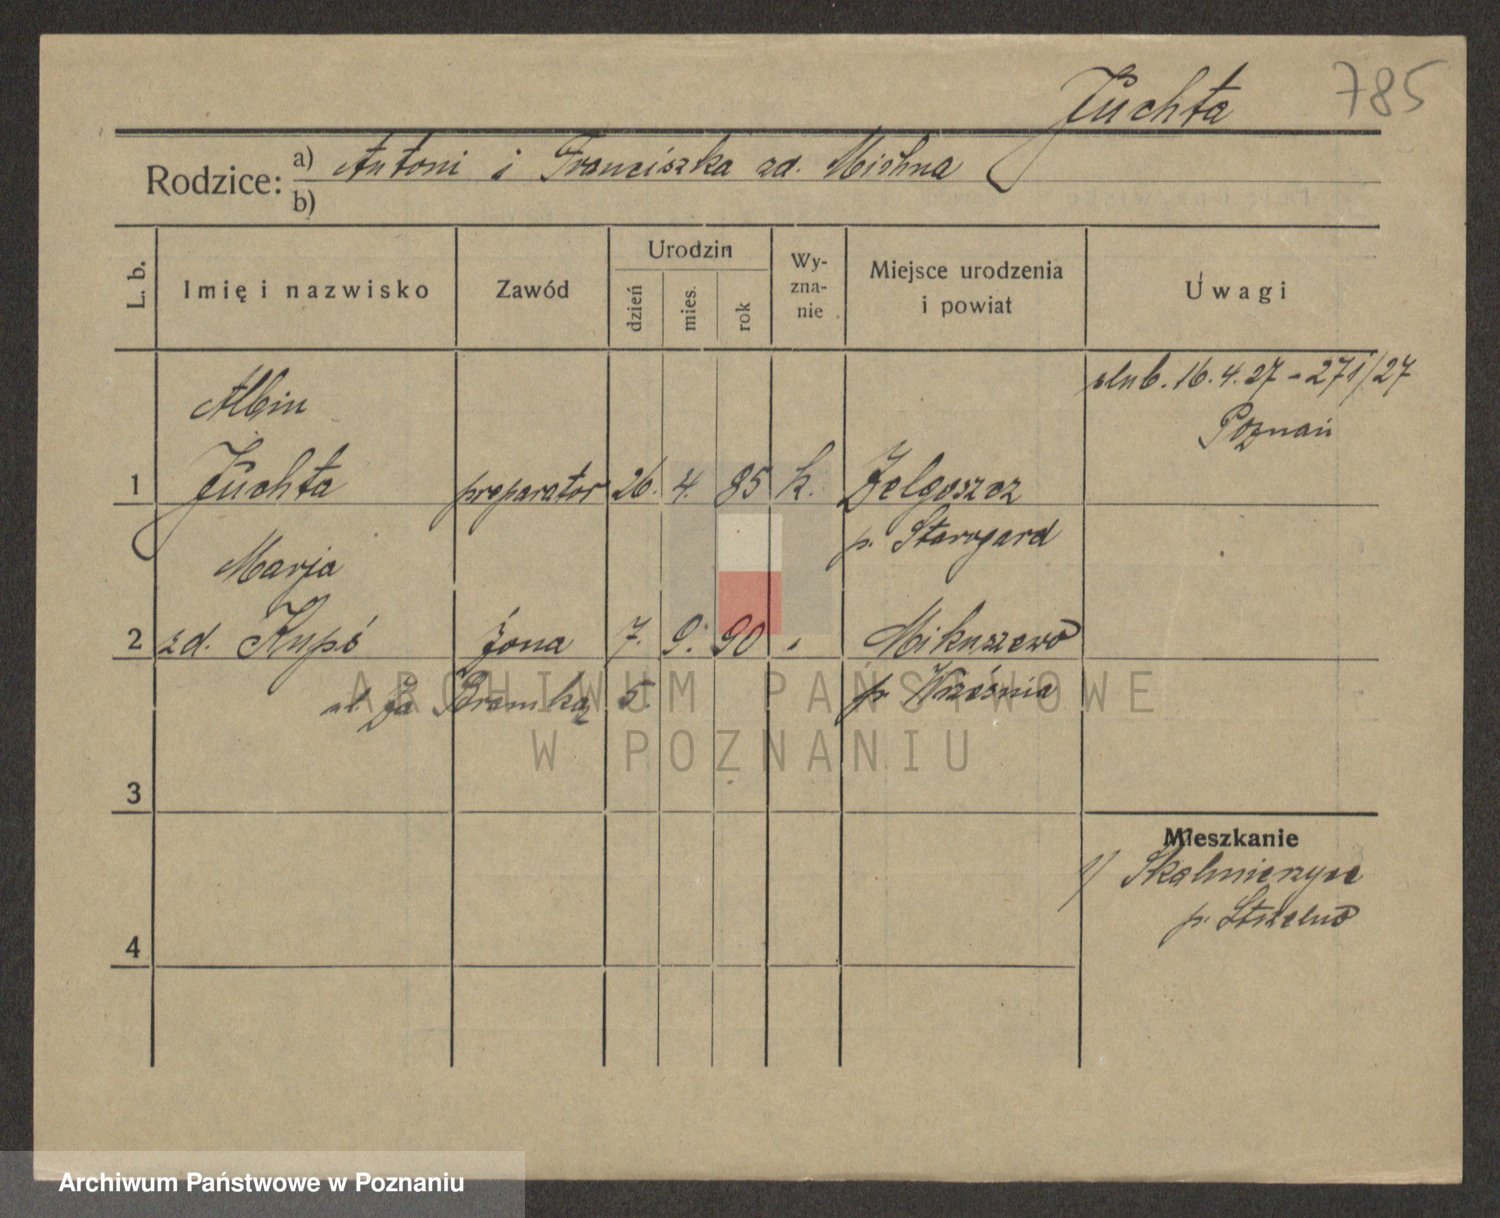 785
Juchta
Rodzice: a) Antoni i Franciszka zd. Michna
b)
L. b. Imię i nazwisko Zawód Urodzin dzień mies. rok Wyznanie Miejsce urodzenia i powiat Uwagi
ślub. 16.4.27 - 271/27
Poznań
Albin
1 Juchta preparator 26. 4. 85 k. Zelgoszcz
p. Starogard
Marja
2 zd. Kupś żona 7. 9. 90 Mikuszewo
ul. Za Bramką 5. p. Września
3
Mieszkanie
1/ Skalmierzyce
p. Strzelno
4
ARCHIWUM PAŃSTWOWE
W POZNANIU
Archiwum Państwowe w Poznaniu